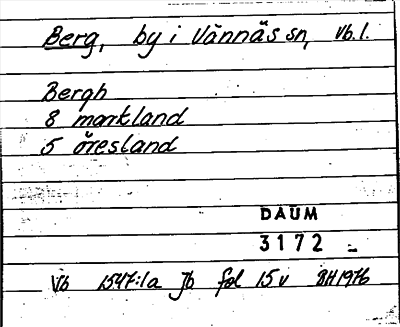 Berg, by i Vännäs sn, Vb.l.
Bergh
8 markland
5 öresland
DAUM
3172
Vb 1547:1a Jb fol 15v BH1976